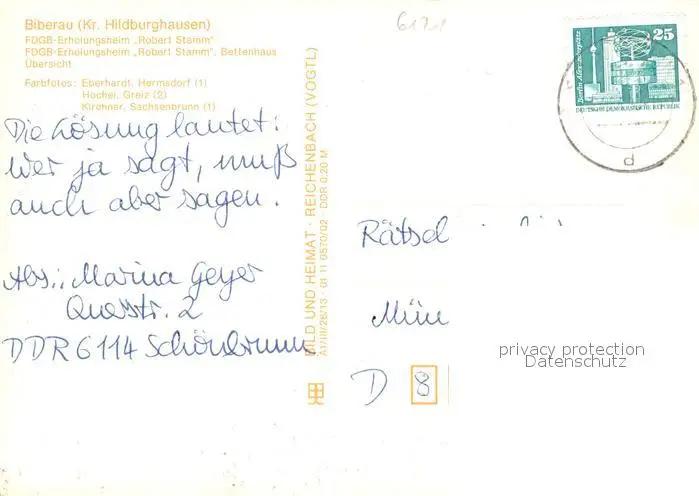 Biberau (Kr. Hildburghausen)
FDGB-Erholungsheim „Robert Stamm“
FDGB-Erholungsheim „Robert Stamm“, Bettenhaus
Übersicht
Farbfotos: Eberhardt, Hermsdorf (1)
Hochel, Greiz (2)
Kirchner, Sachsenbrunn (1)
Die Lösung lautet:
Wer ja sagt, muß
auch aber sagen.
Abs.: Marina Geyer
Querstr. 2
DDR 6114 Schönbrunn
BILD UND HEIMAT · REICHENBACH (VOGTL)
A1/III/26/13 · 01 11 0570/02 · DDR 0,20 M
25
Berlin, Alexanderplatz
DEUTSCHE DEMOKRATISCHE REPUBLIK
d
Rätsel
Mün
D 8
privacy protection
Datenschutz